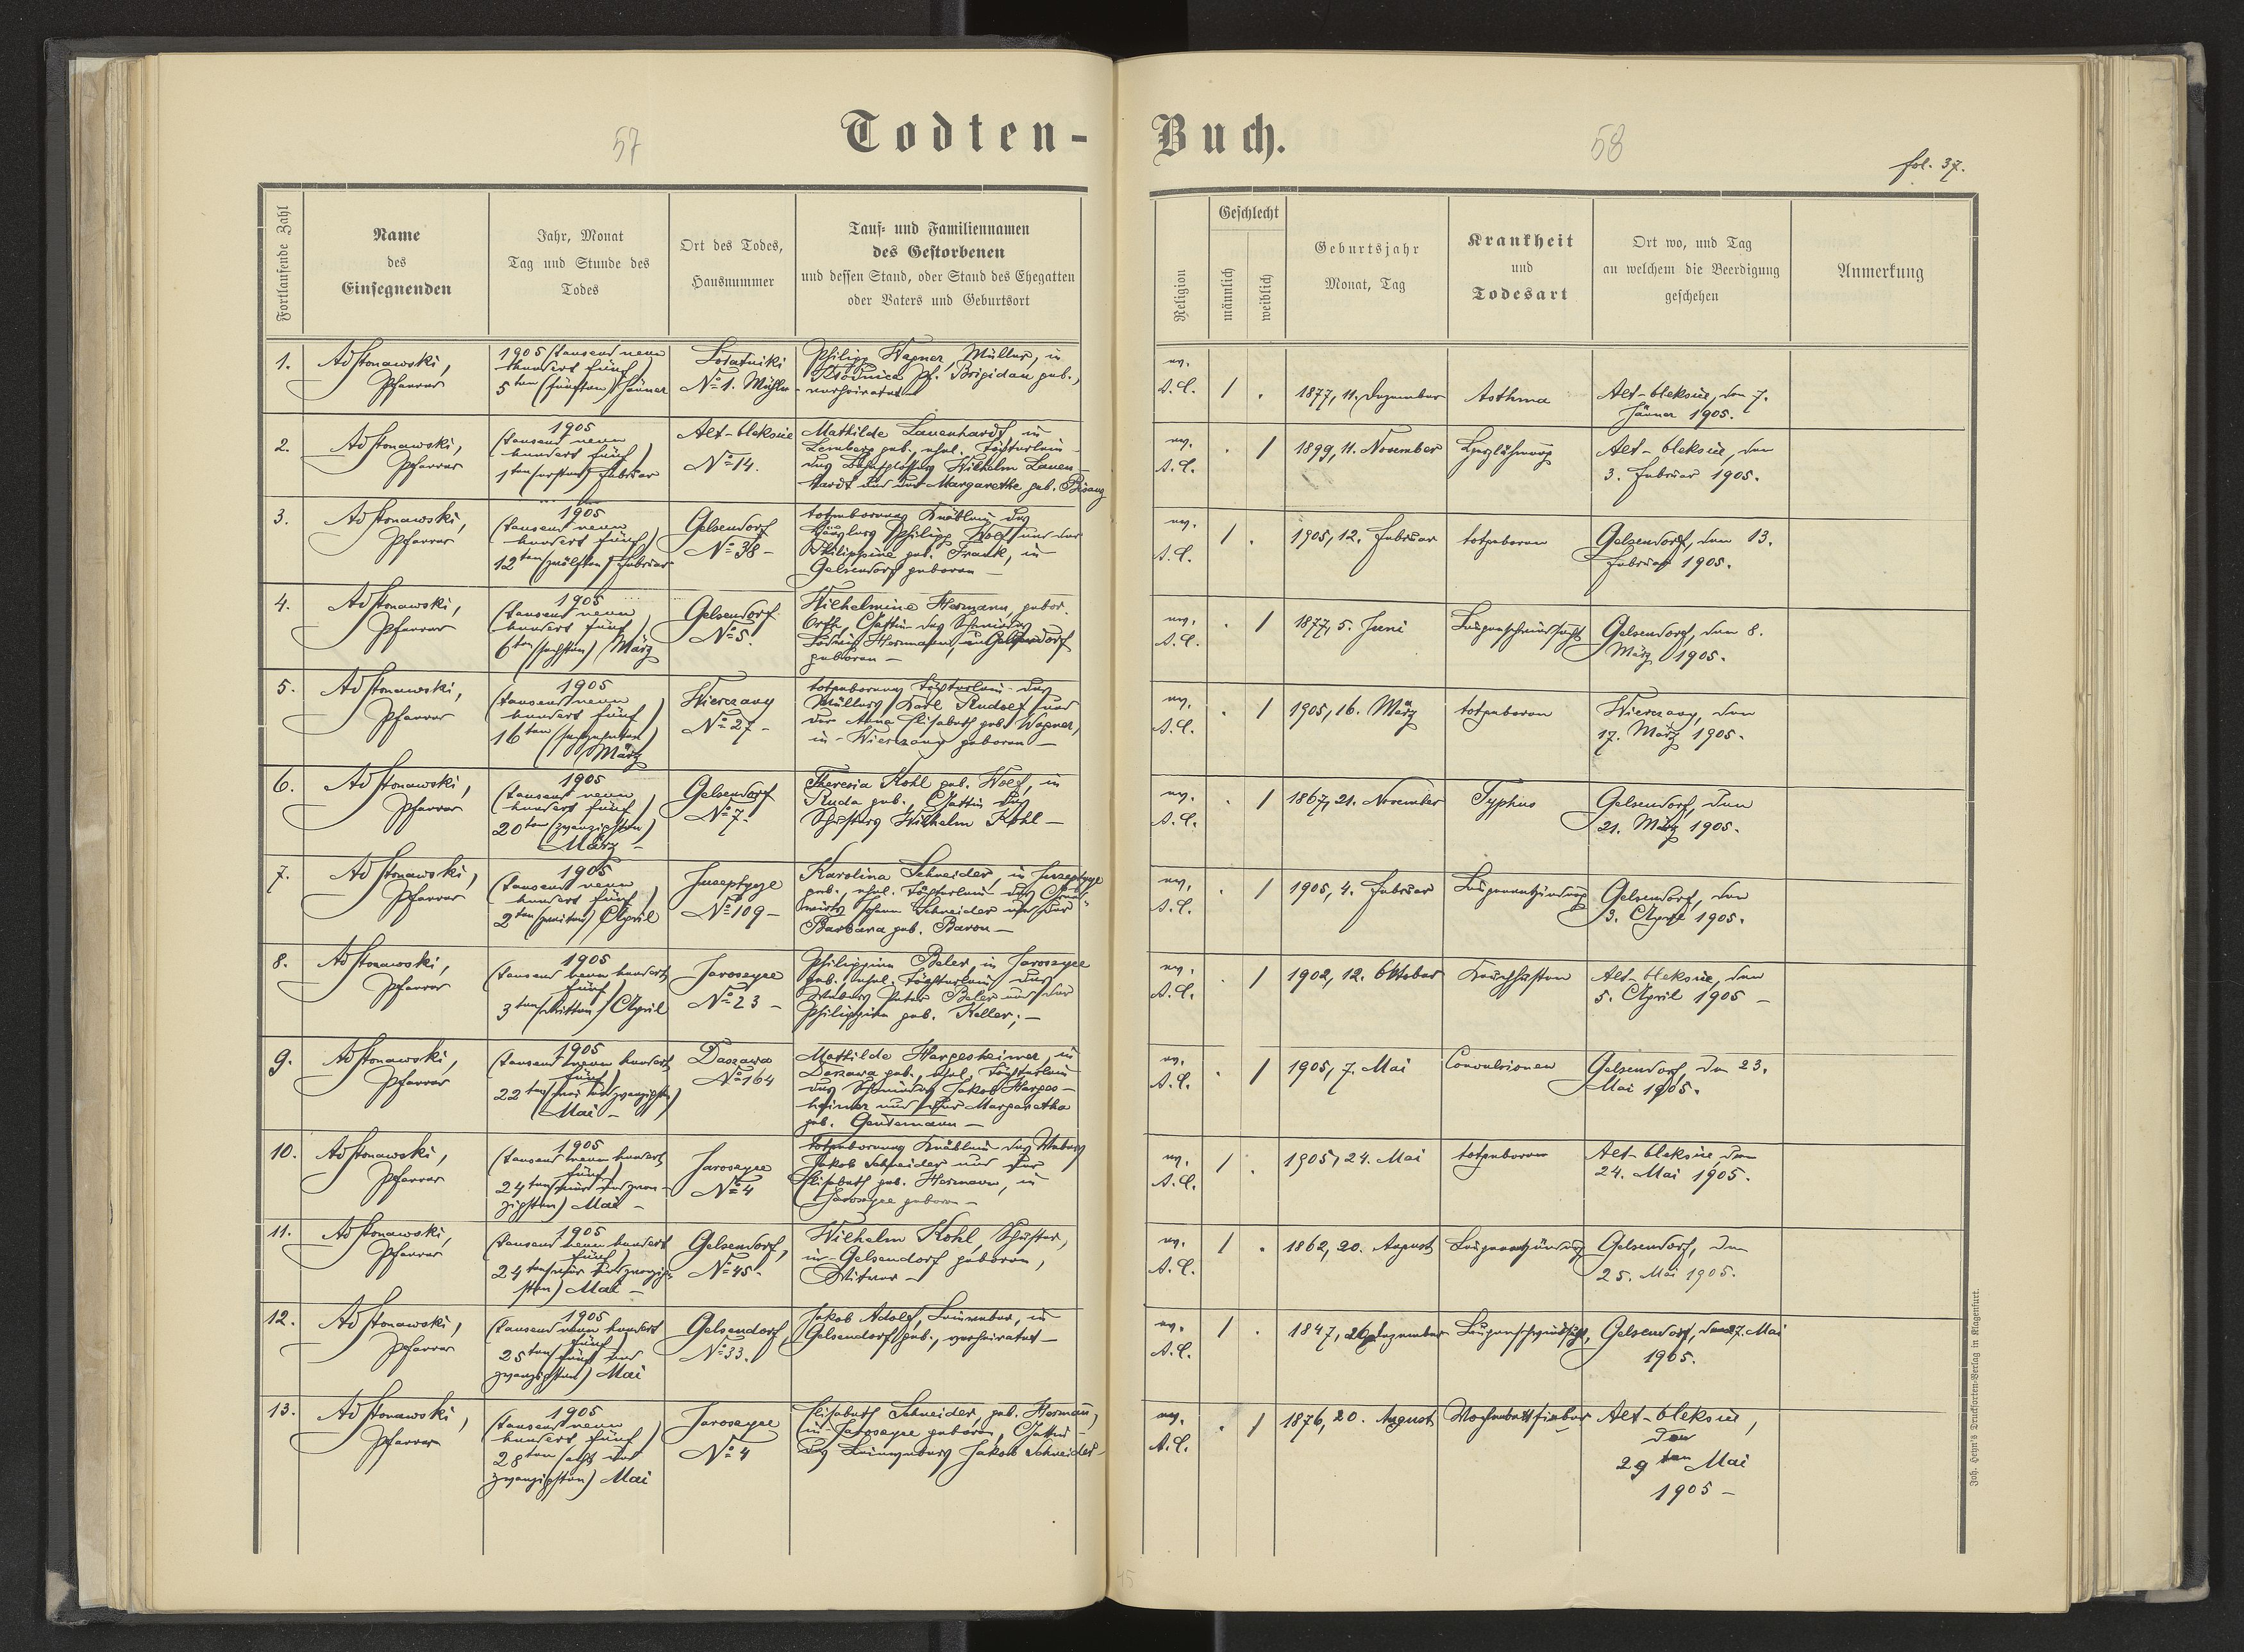 57
Todten-
Buch.
58
fol. 37.
Fortlaufende Zahl
Name
des
Einsegnenden
Jahr, Monat
Tag und Stunde des
Todes
Ort des Todes,
Hausnummer
Tauf- und Familiennamen
des Gestorbenen
und dessen Stand, oder Stand des Ehegatten
oder Vaters und Geburtsort
Religion
Geschlecht
männlich
weiblich
Geburtsjahr
Monat, Tag
Krankheit
und
Todesart
Ort wo, und Tag
an welchem die Beerdigung
geschehen
Anmerkung
1.
Ad Stonawski,
Pfarrer
1905 (tausend neun
hundert fünf)
5ten (fünften) Jänner
No 1. Mühle
Philipp Wagner, Müller, in
Kłodnica Pf. Brigidau geb.,
verheiratet
ev.
A.C.
1 .
1877, 11. Dezember
Asthma
Alt-Oleksue, den 7.
Jänner 1905.
2.
Ad Stonawski,
Pfarrer
1905
(tausend neun
hundert fünf)
1ten (ersten) Februar
Alt-Oleksue
No 14.
Mathilde Lauenhardt, in
Lemberg geb., ehel. Töchterlein
des Wilhelm Lauen-
hardt und der Margarethe geb. Bisanz
ev.
A.C.
. 1
1899, 11. November
Herzlähmung
Alt-Oleksue, den
3. Februar 1905.
3.
Ad Stonawski,
Pfarrer
1905
(tausend neun
hundert fünf)
12ten (zwölften) Februar
Gelsendorf
No 38 -
totgeborenes Knäblein des
Philipp Wolf und der
Philippine geb. Frank, in
Gelsendorf geboren -
ev.
A.C.
1 .
1905, 12. Februar
totgeboren
Gelsendorf, den 13.
Februar 1905.
4.
Ad Stonawski,
Pfarrer
1905
(tausend neun
hundert fünf)
6ten (sechsten) März
Gelsendorf
No 5.
Wilhelmine Hermann, gebor.
Orth, Gattin des Schmiedes
Ludwig Hermann, in Gelsendorf
geboren -
ev.
A.C.
. 1
1877, 5. Juni
Lungenschwindsucht
Gelsendorf, den 8.
März 1905.
5.
Ad Stonawski,
Pfarrer
1905
(tausend neun
hundert fünf)
16ten (sechzehnten)
März
Wierczany
No 27 -
totgeborenes Töchterlein des
Müllers Karl Rudolf und
der Anna Elisabeth geb. Wagner,
in Wierczany geboren -
ev.
A.C.
. 1
1905, 16. März
totgeboren
Wierczany, den
17. März 1905.
6.
Ad Stonawski,
Pfarrer
1905
(tausend neun
hundert fünf)
20ten (zwanzigsten)
März -
Gelsendorf
No 7.
Theresia Kohl geb. Wolf, in
Ruda geb., Gattin des
Schusters Wilhelm Kohl -
ev.
A.C.
. 1
1867, 21. November
Typhus
Gelsendorf, den
21. März 1905.
7.
Ad Stonawski,
Pfarrer
1905
(tausend neun
hundert fünf)
2ten (zweiten) April
Juseptycze
No 109 -
Karolina Schneider, in Juseptycze
geb., ehel. Töchterlein des Grund-
wirts Johann Schneider und der
Barbara geb. Baron -
ev.
A.C.
. 1
1905, 4. Februar
Lungenentzündung
Gelsendorf, den
3. April 1905.
8.
Ad Stonawski,
Pfarrer
1905
(tausend neun hundert
fünf)
3ten (dritten) April
Jaroszyce
No 23 -
Philippine Beler in Jaroszyce
geb., ehel. Töchterlein des
Webers Peter Beler und der
Philippina geb. Keller; -
ev.
A.C.
. 1
1902, 12. Oktober
Keuchhusten
Alt-Oleksue, den
5. April 1905 -
9.
Ad Stonawski,
Pfarrer
1905
(tausend neun hundert
fünf)
22ten (zwei und zwanzigsten)
Mai -
Daszawa
No 164
Mathilde Hargesheimer, in
Daszawa geb., ehel. Töchterlein
des Schmiedes Jakob Harges-
heimer und der Margaretha
geb. Gendemann -
ev.
A.C.
. 1
1905, 7. Mai
Convulsionen
Gelsendorf, den 23.
Mai 1905.
10.
Ad Stonawski,
Pfarrer
1905
(tausend neun hundert
fünf)
24ten (vier und zwan-
zigsten) Mai -
Jaroszyce
No 4
totgeborenes Knäblein des Webers
Jakob Schneider und der
Elisabeth geb. Hermann, in
Jaroszyce geboren -
ev.
A.C.
1 .
1905, 24. Mai
totgeboren
Alt-Oleksue, den
24. Mai 1905.
11.
Ad Stonawski,
Pfarrer
1905
(tausend neun hundert
fünf)
24ten (vier und zwanzig-
sten) Mai -
Gelsendorf,
No 45.
Wilhelm Kohl, Schuster,
in Gelsendorf geboren,
Witwer -
ev.
A.C.
1 .
1862, 20. August
Lungenentzündung
Gelsendorf, den
25. Mai 1905.
12.
Ad Stonawski,
Pfarrer
1905
(tausend neun hundert
fünf)
25ten (fünf und
zwanzigsten) Mai
Gelsendorf,
No 33.
Jakob Adolf, Leinweber, in
Gelsendorf geb., verheiratet -
ev.
A.C.
1 .
1847, 26. Dezember
Lungenschwindsucht,
Gelsendorf, den 27. Mai
1905.
13.
Ad Stonawski,
Pfarrer
1905
(tausend neun
hundert fünf)
28ten (acht und
zwanzigsten) Mai
Jaroszyce
No 4
Elisabeth Schneider, geb. Hermann,
in Jaroszyce geboren, Gattin
des Leinwebers Jakob Schneider -
ev.
A.C.
. 1
1876, 20. August
Wochenbettfieber
Alt-Oleksue,
den
29ten Mai
1905 -
Joh. Heyn's Drucksorten-Verlag in Klagenfurt.